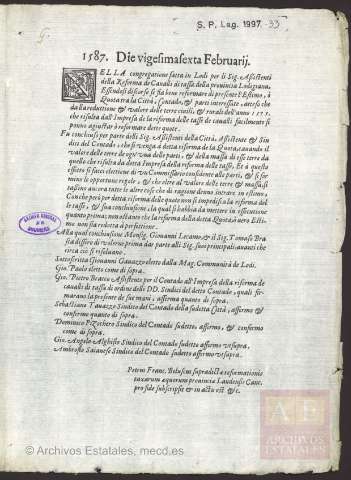 S. P. Leg. 1997 - 33
1587. Die vigesimasexta Februarij.
NELLA congregatione fatta in Lodi per li Sig. Assistenti
della Reforma de Caualli di tasse della prouincia Lodegiana,
Essendosi discorso si sia bene reformare di presente l'Estimo, ò
Quota tra la Città, Contado, & parti interessate, atteso che
dalla reduttione & valore delle terre ciuili, & rurali dell'anno
che risulta dall'Impresa de la reforma delle tasse de caualli facilmente si
ponno agiustar & reformare dette quote.
Fu conchiuso per parte delli Sig. Assistenti della Città, Assistente & Sin
dici del Contado, che si uenga à detta reforma de la Quota, attendo il
valore delle terre de ogn'vna delle parti, & della massa di esse terre da
quello che risulta da detta Impresa della reforma delle tasse. Et à questo
effetto si facci elettione di vn Commissario confidente alle parti, & si for
mino le opportune regole, & che oltre al valore delle terre & massa si
tassano ancora tutte le altre cose che di ragione deuno intrare in estimo.
Con che però per detta reforma delle quote non si impedisca la reforma del
le tasse, & sua conclusione, la qual si habbia da mettere in essecutione
quanto prima; non ostante che la reforma della detta Quota, ò uero Esti
mo non sia redotta à perfettione.
Alla qual conchiusione Monsig. Giouanni Locamo, & il Sig. Tomaso Bra
sca dissero di volerne prima dar parte alli Sig. suoi principali auanti che
circa ciò si risoluano.
Sottoscritta Giouanni Gauazzo eletto dalla Mag. Communità de Lodi.
Gio. Paulo eletto come di sopra.
Gio. Pietro Bracco Assistente per il Contado all'Impresa della reforma de
caualli di tasse di ordine delli DD. Sindici del detto Contado, quali fir
marano la presente de sue mani, afferma quanto di sopra.
Sebastiano Tauazzo Sindico del Contado della sudetta Città, affermo &
confirmo quanto di sopra.
Dominico Pozzobero Sindico del Contado sudetto affermo, & confirmo
come di sopra.
Gio. Angelo Alghisio Sindico del Contado sudetto affermo vt supra.
Ambrosio Saianese Sindico del Contado sudetto affermo vt supra.
Petrus Franc. Belusius supradictæ reformationis
taxarum equorum prouinciæ Laudensis Canc.
pro fide subscripsit & in actu est &c.
ARCHIVO GENERAL
SIMANCAS
ARCHIVOS
ESTATALES
© Archivos Estatales, mecd.es